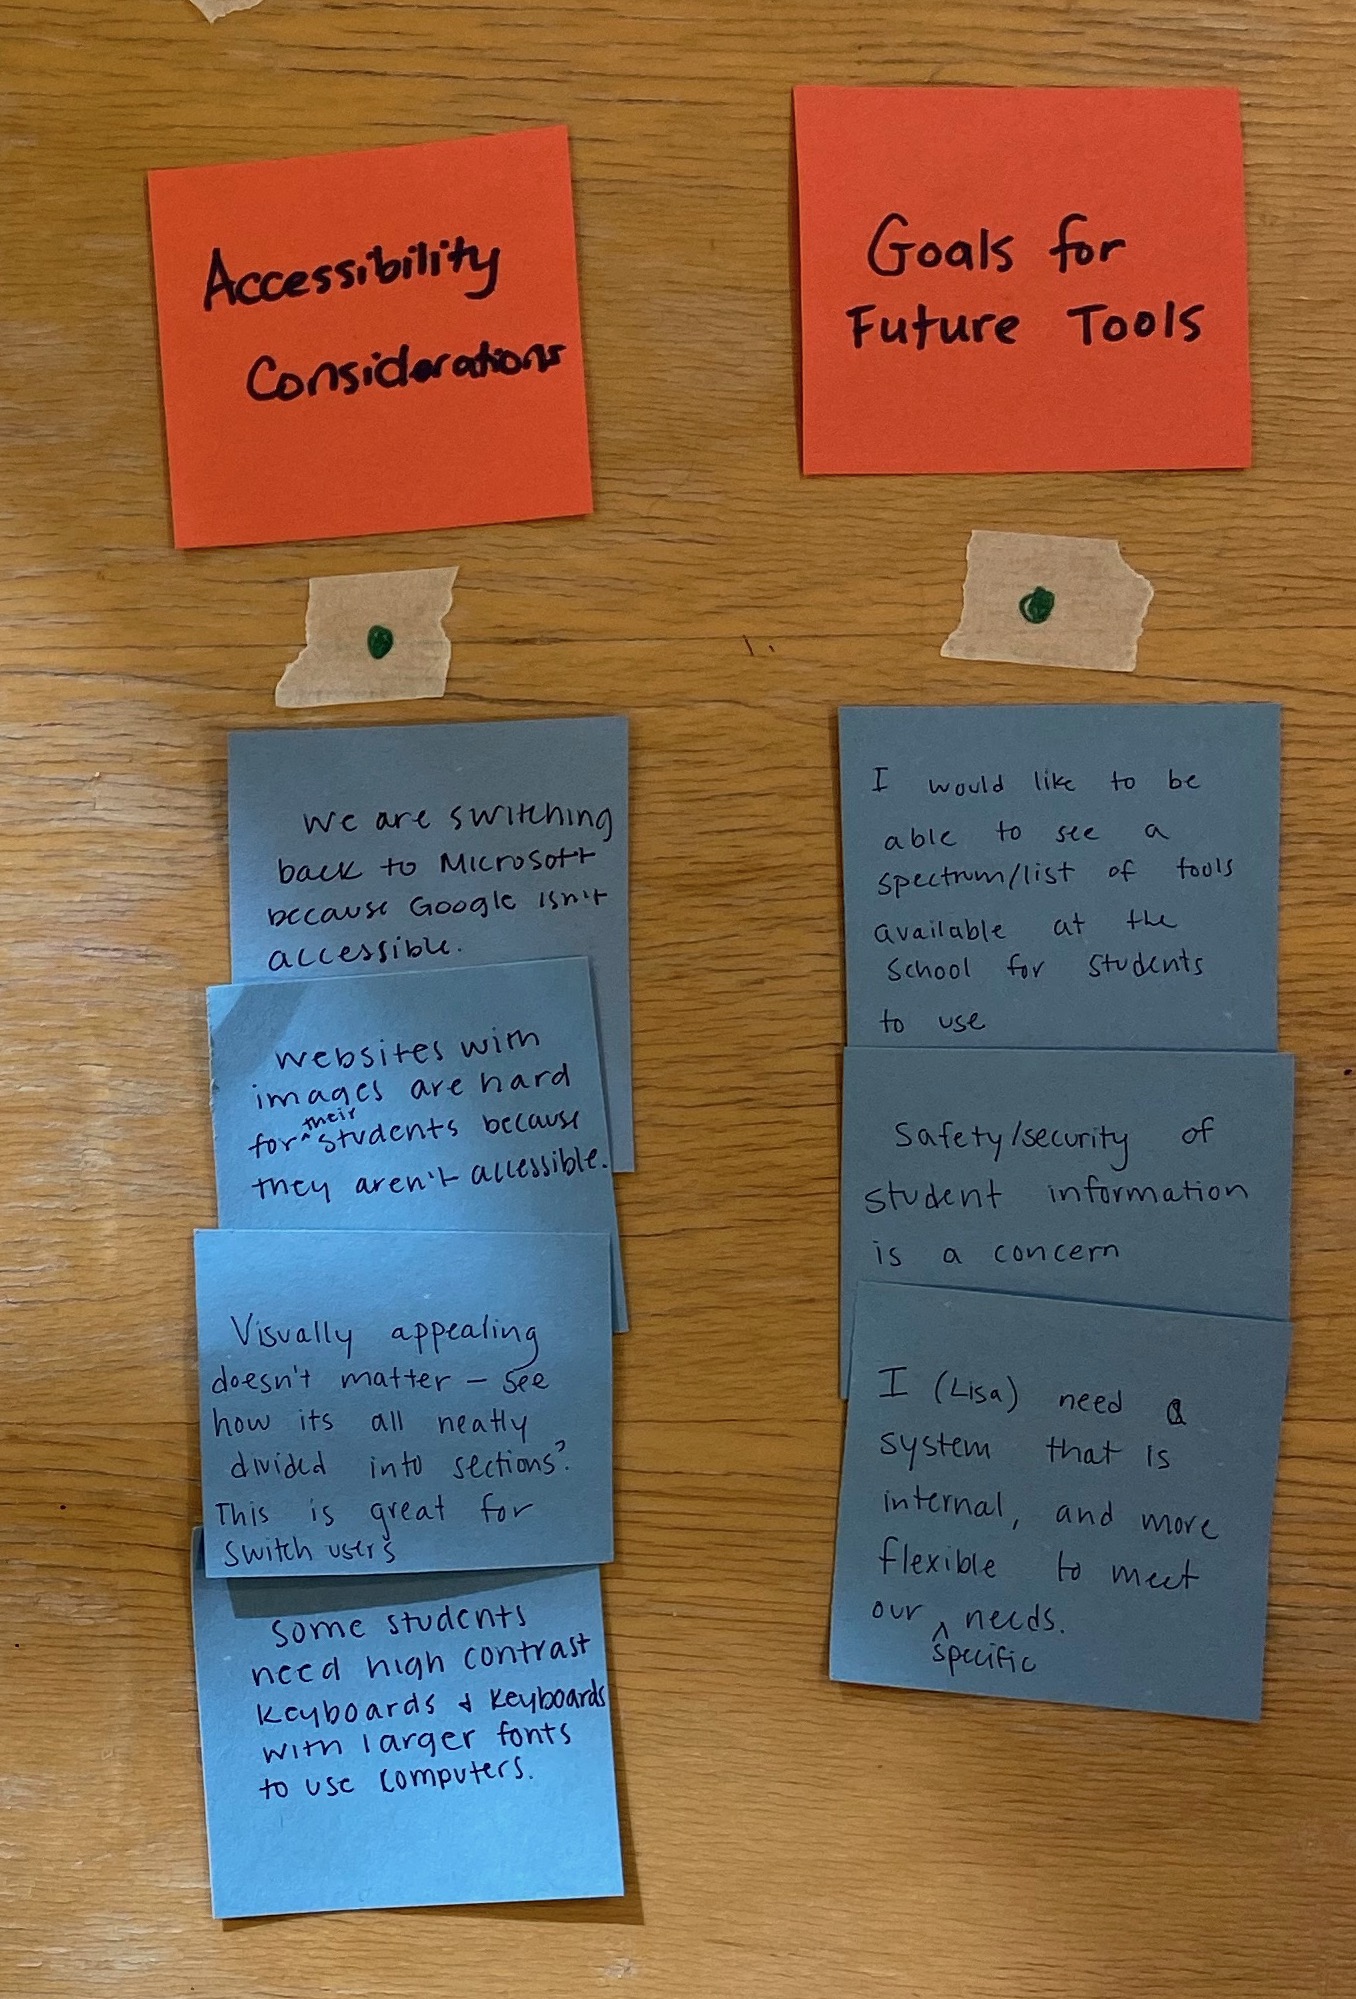 Accessibility
Considerations
We are switching
back to Microsoft
because Google isn't
accessible.
Websites with
images are hard
for ^ their students because
they aren't accessible.
Visually appealing
doesn't matter – see
how its all neatly
divided into sections?
This is great for
switch users
Some students
need high contrast
keyboards & keyboards
with larger fonts
to use computers.
Goals for
Future Tools
I would like to be
able to see a
spectrum/list of tools
available at the
school for students
to use
Safety/security of
student information
is a concern
I (Lisa) need a
system that is
internal, and more
flexible to meet
our ^ needs.
specific